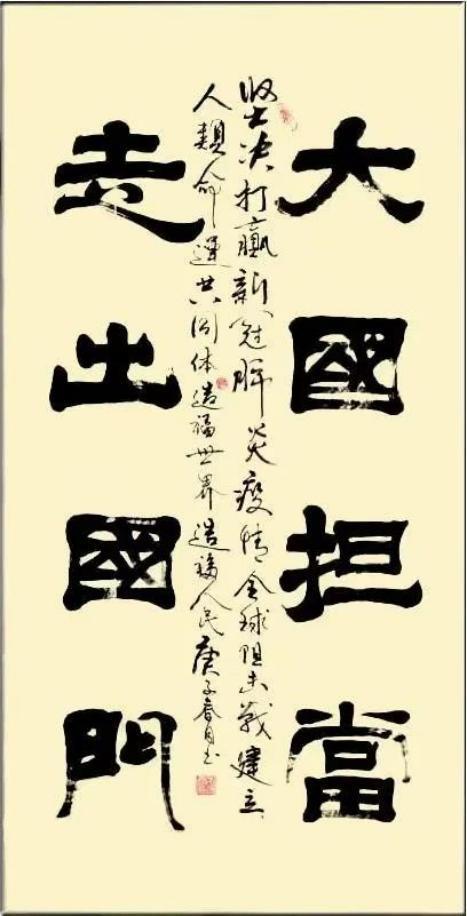 大國担當
坚决打赢新冠肺炎疫情全球阻击战建立
人类命運共同体造福世界造福人民庚子春月书
走出國門